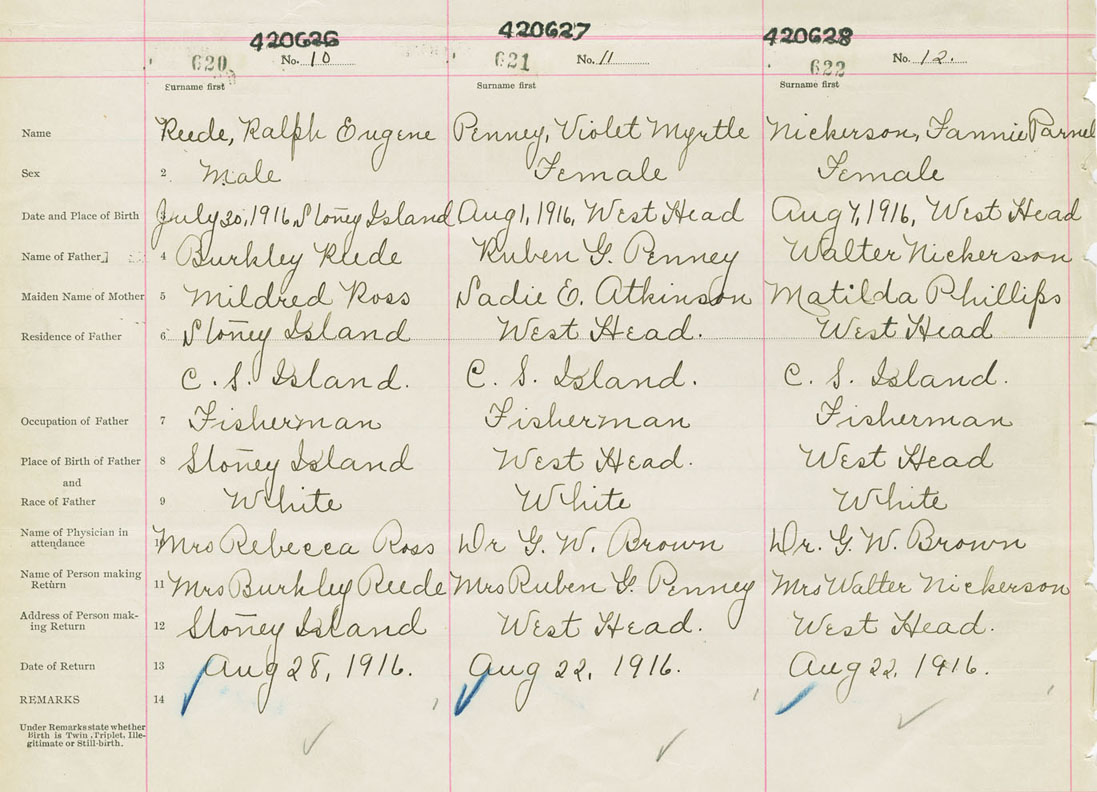 420626 420627 420628
620 No. 10 621 No. 11 622 No. 12.
Surname first Surname first Surname first
Name Reede, Ralph Eugene Penney, Violet Myrtle Nickerson, Fannie Parnel
Sex 2 Male Female Female
Date and Place of Birth 3 July 30, 1916, Stoney Island Aug 1, 1916, West Head Aug 7, 1916, West Head
Name of Father 4 Burkley Reede Ruben G. Penney Walter Nickerson
Maiden Name of Mother 5 Mildred Ross Sadie E. Atkinson Matilda Phillips
Residence of Father 6 Stoney Island West Head. West Head
C. S. Island. C. S. Island. C. S. Island.
Occupation of Father 7 Fisherman Fisherman Fisherman
Place of Birth of Father 8 Stoney Island West Head. West Head
and
Race of Father 9 White White White
Name of Physician in
attendance 10 Mrs Rebecca Ross Dr G. W. Brown Dr. G. W. Brown
Name of Person making
Return 11 Mrs Burkley Reede Mrs Ruben G. Penney Mrs Walter Nickerson
Address of Person mak-
ing Return 12 Stoney Island West Head. West Head.
Date of Return 13 Aug 28, 1916. Aug 22, 1916. Aug 22, 1916.
REMARKS 14
Under Remarks state whether
Birth is Twin, Triplet, Ille-
gitimate or Still-birth.